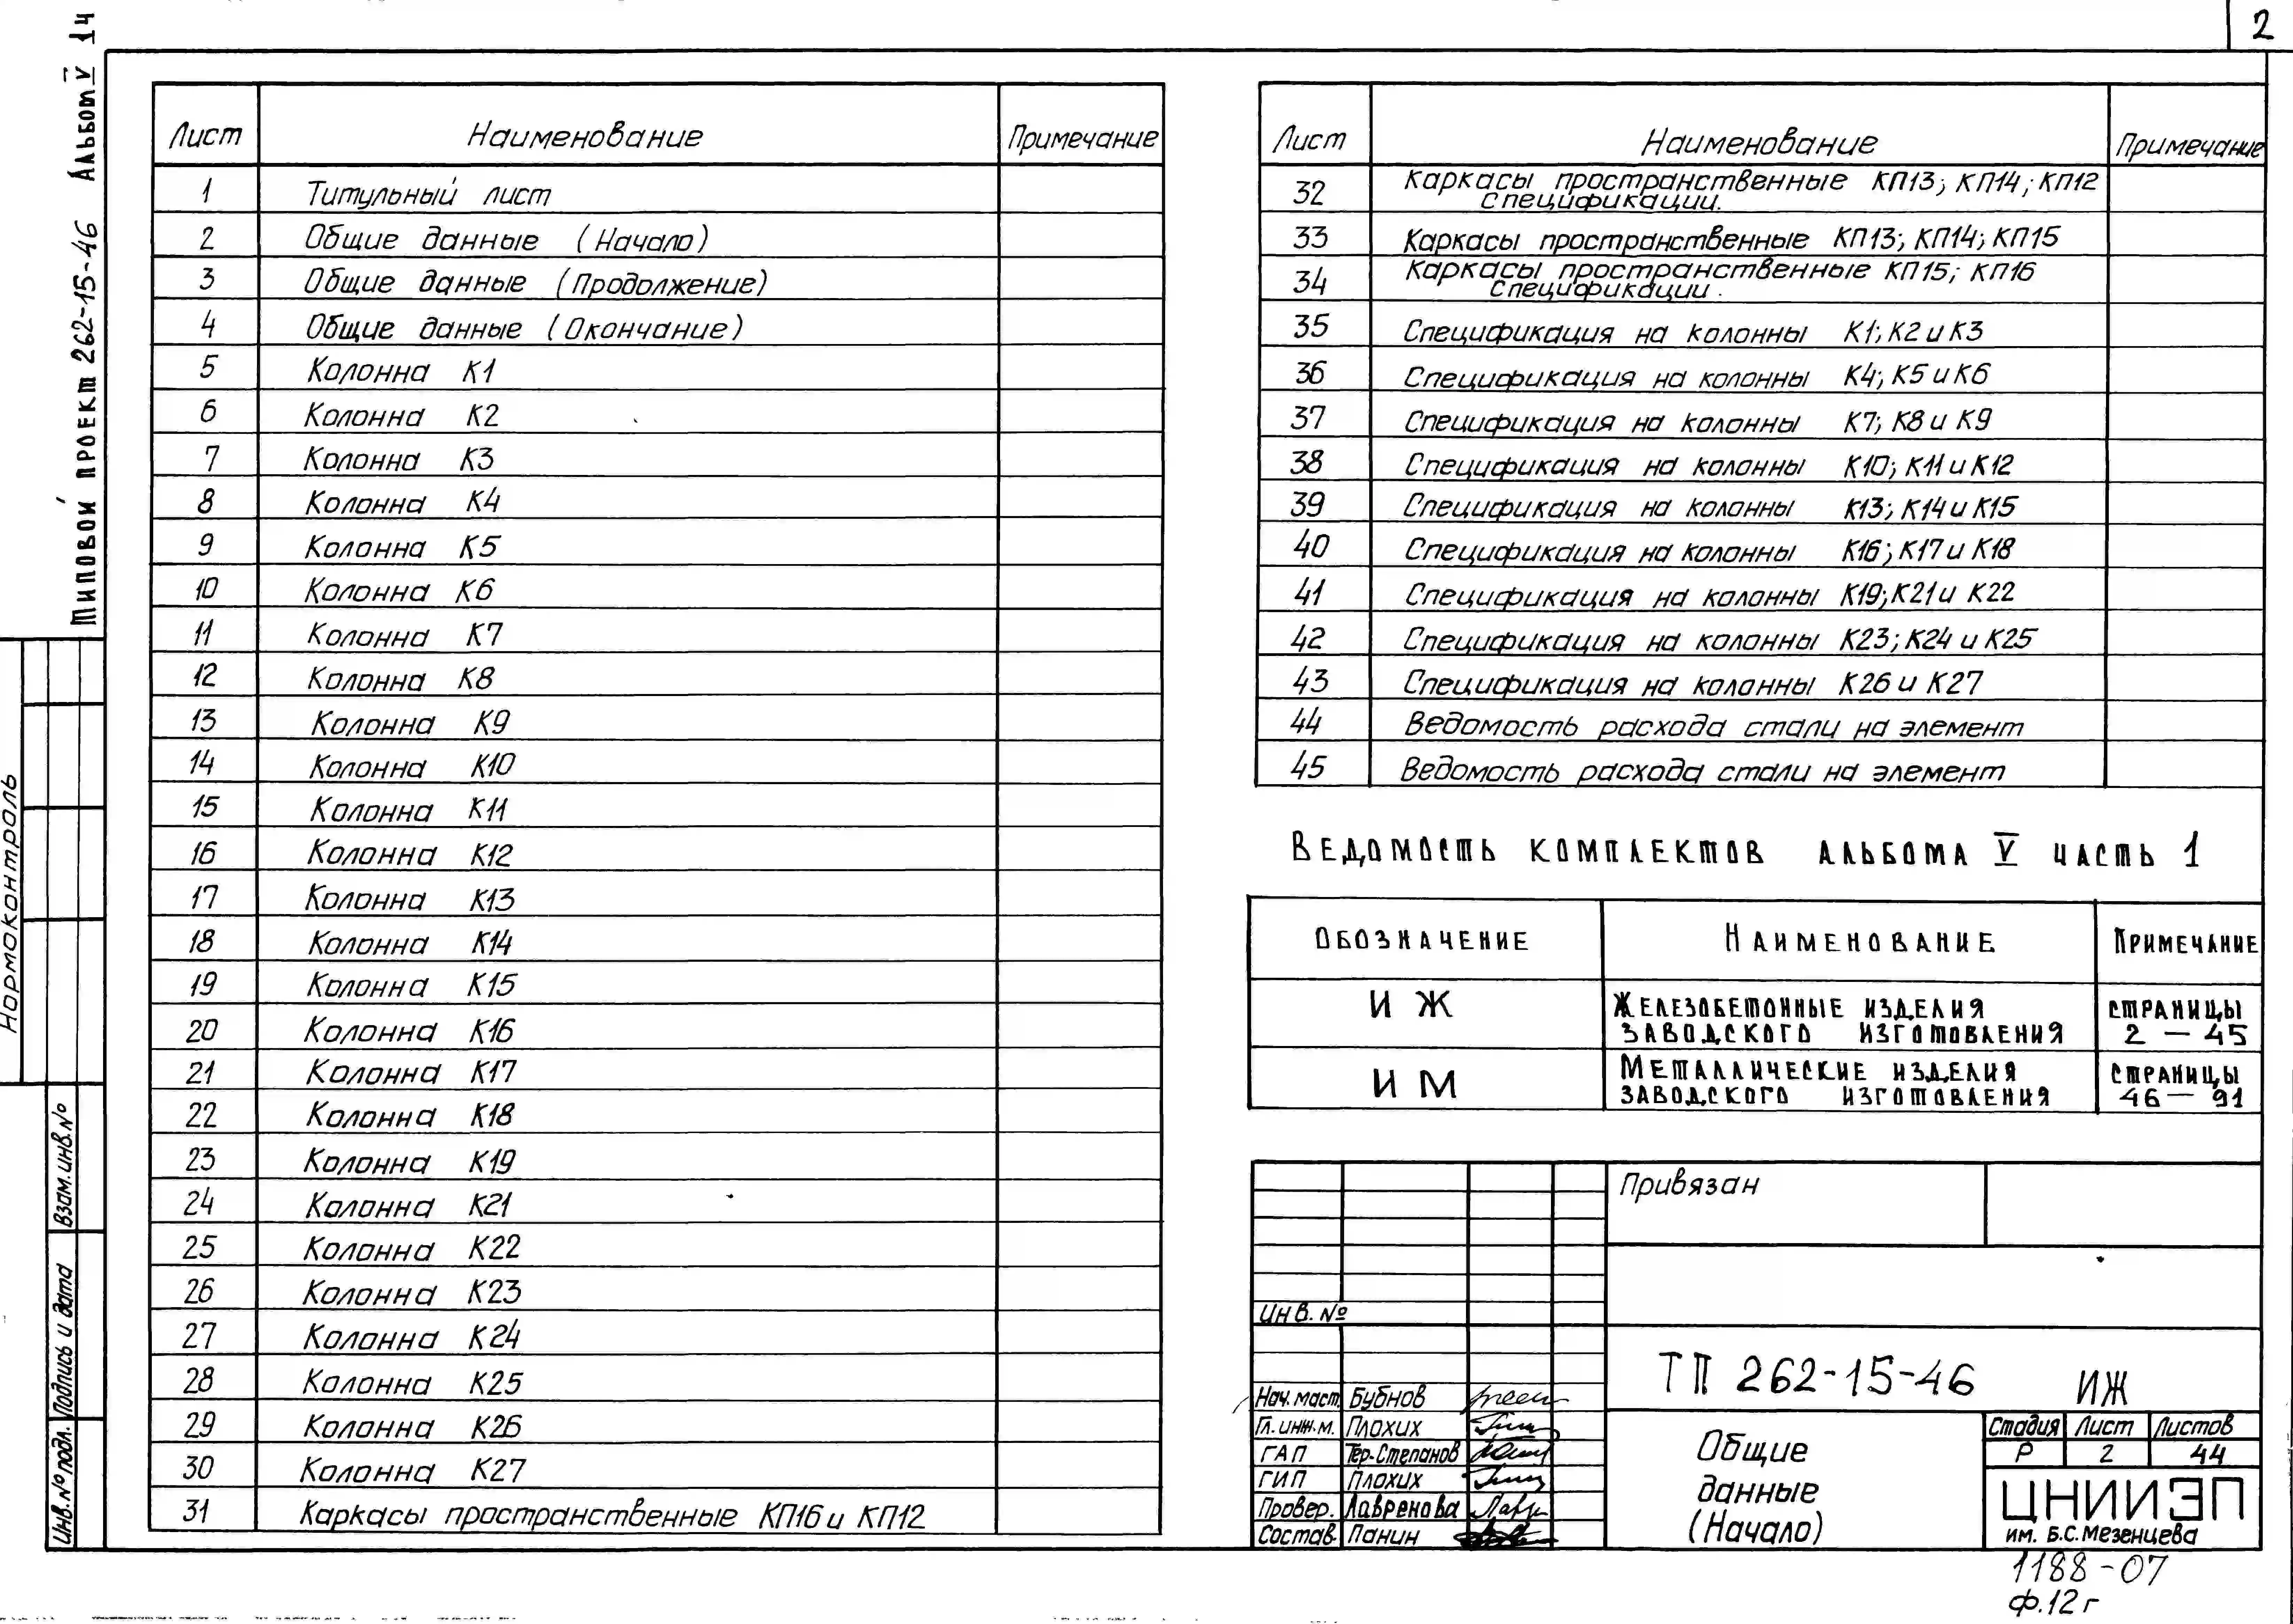 2
Типовой проект 262-15-46 Альбом V 1ч
Нормоконтроль
Взам. инв. №
Подпись и дата
Инв. № подл.
Лист Наименование Примечание
1 Титульный лист
2 Общие данные (Начало)
3 Общие данные (Продолжение)
4 Общие данные (Окончание)
5 Колонна К1
6 Колонна К2
7 Колонна К3
8 Колонна К4
9 Колонна К5
10 Колонна К6
11 Колонна К7
12 Колонна К8
13 Колонна К9
14 Колонна К10
15 Колонна К11
16 Колонна К12
17 Колонна К13
18 Колонна К14
19 Колонна К15
20 Колонна К16
21 Колонна К17
22 Колонна К18
23 Колонна К19
24 Колонна К21
25 Колонна К22
26 Колонна К23
27 Колонна К24
28 Колонна К25
29 Колонна К26
30 Колонна К27
31 Каркасы пространственные КП16 и КП12
Лист Наименование Примечание
32 Каркасы пространственные КП13; КП14; КП12
спецификации.
33 Каркасы пространственные КП13; КП14; КП15
34 Каркасы пространственные КП15; КП16
спецификации.
35 Спецификация на колонны К1; К2 и К3
36 Спецификация на колонны К4; К5 и К6
37 Спецификация на колонны К7; К8 и К9
38 Спецификация на колонны К10; К11 и К12
39 Спецификация на колонны К13; К14 и К15
40 Спецификация на колонны К16; К17 и К18
41 Спецификация на колонны К19; К21 и К22
42 Спецификация на колонны К23; К24 и К25
43 Спецификация на колонны К26 и К27
44 Ведомость расхода стали на элемент
45 Ведомость расхода стали на элемент
Ведомость комплектов альбома V часть 1
Обозначение Наименование Примечание
ИЖ Железобетонные изделия заводского изготовления страницы 2 — 45
ИМ Металлические изделия заводского изготовления страницы 46 — 91
Привязан
Инв. №
ТП 262-15-46 ИЖ
Нач. маст. Бубнов
Гл. инж. м. Плохих
ГАП Тер-Степанов
ГИП Плохих
Провер. Лавренова
Состав. Панин
Общие
данные
(Начало)
Стадия Лист Листов
Р 2 44
ЦНИИЭП
им. Б.С. Мезенцева
1188-07
ф.12г